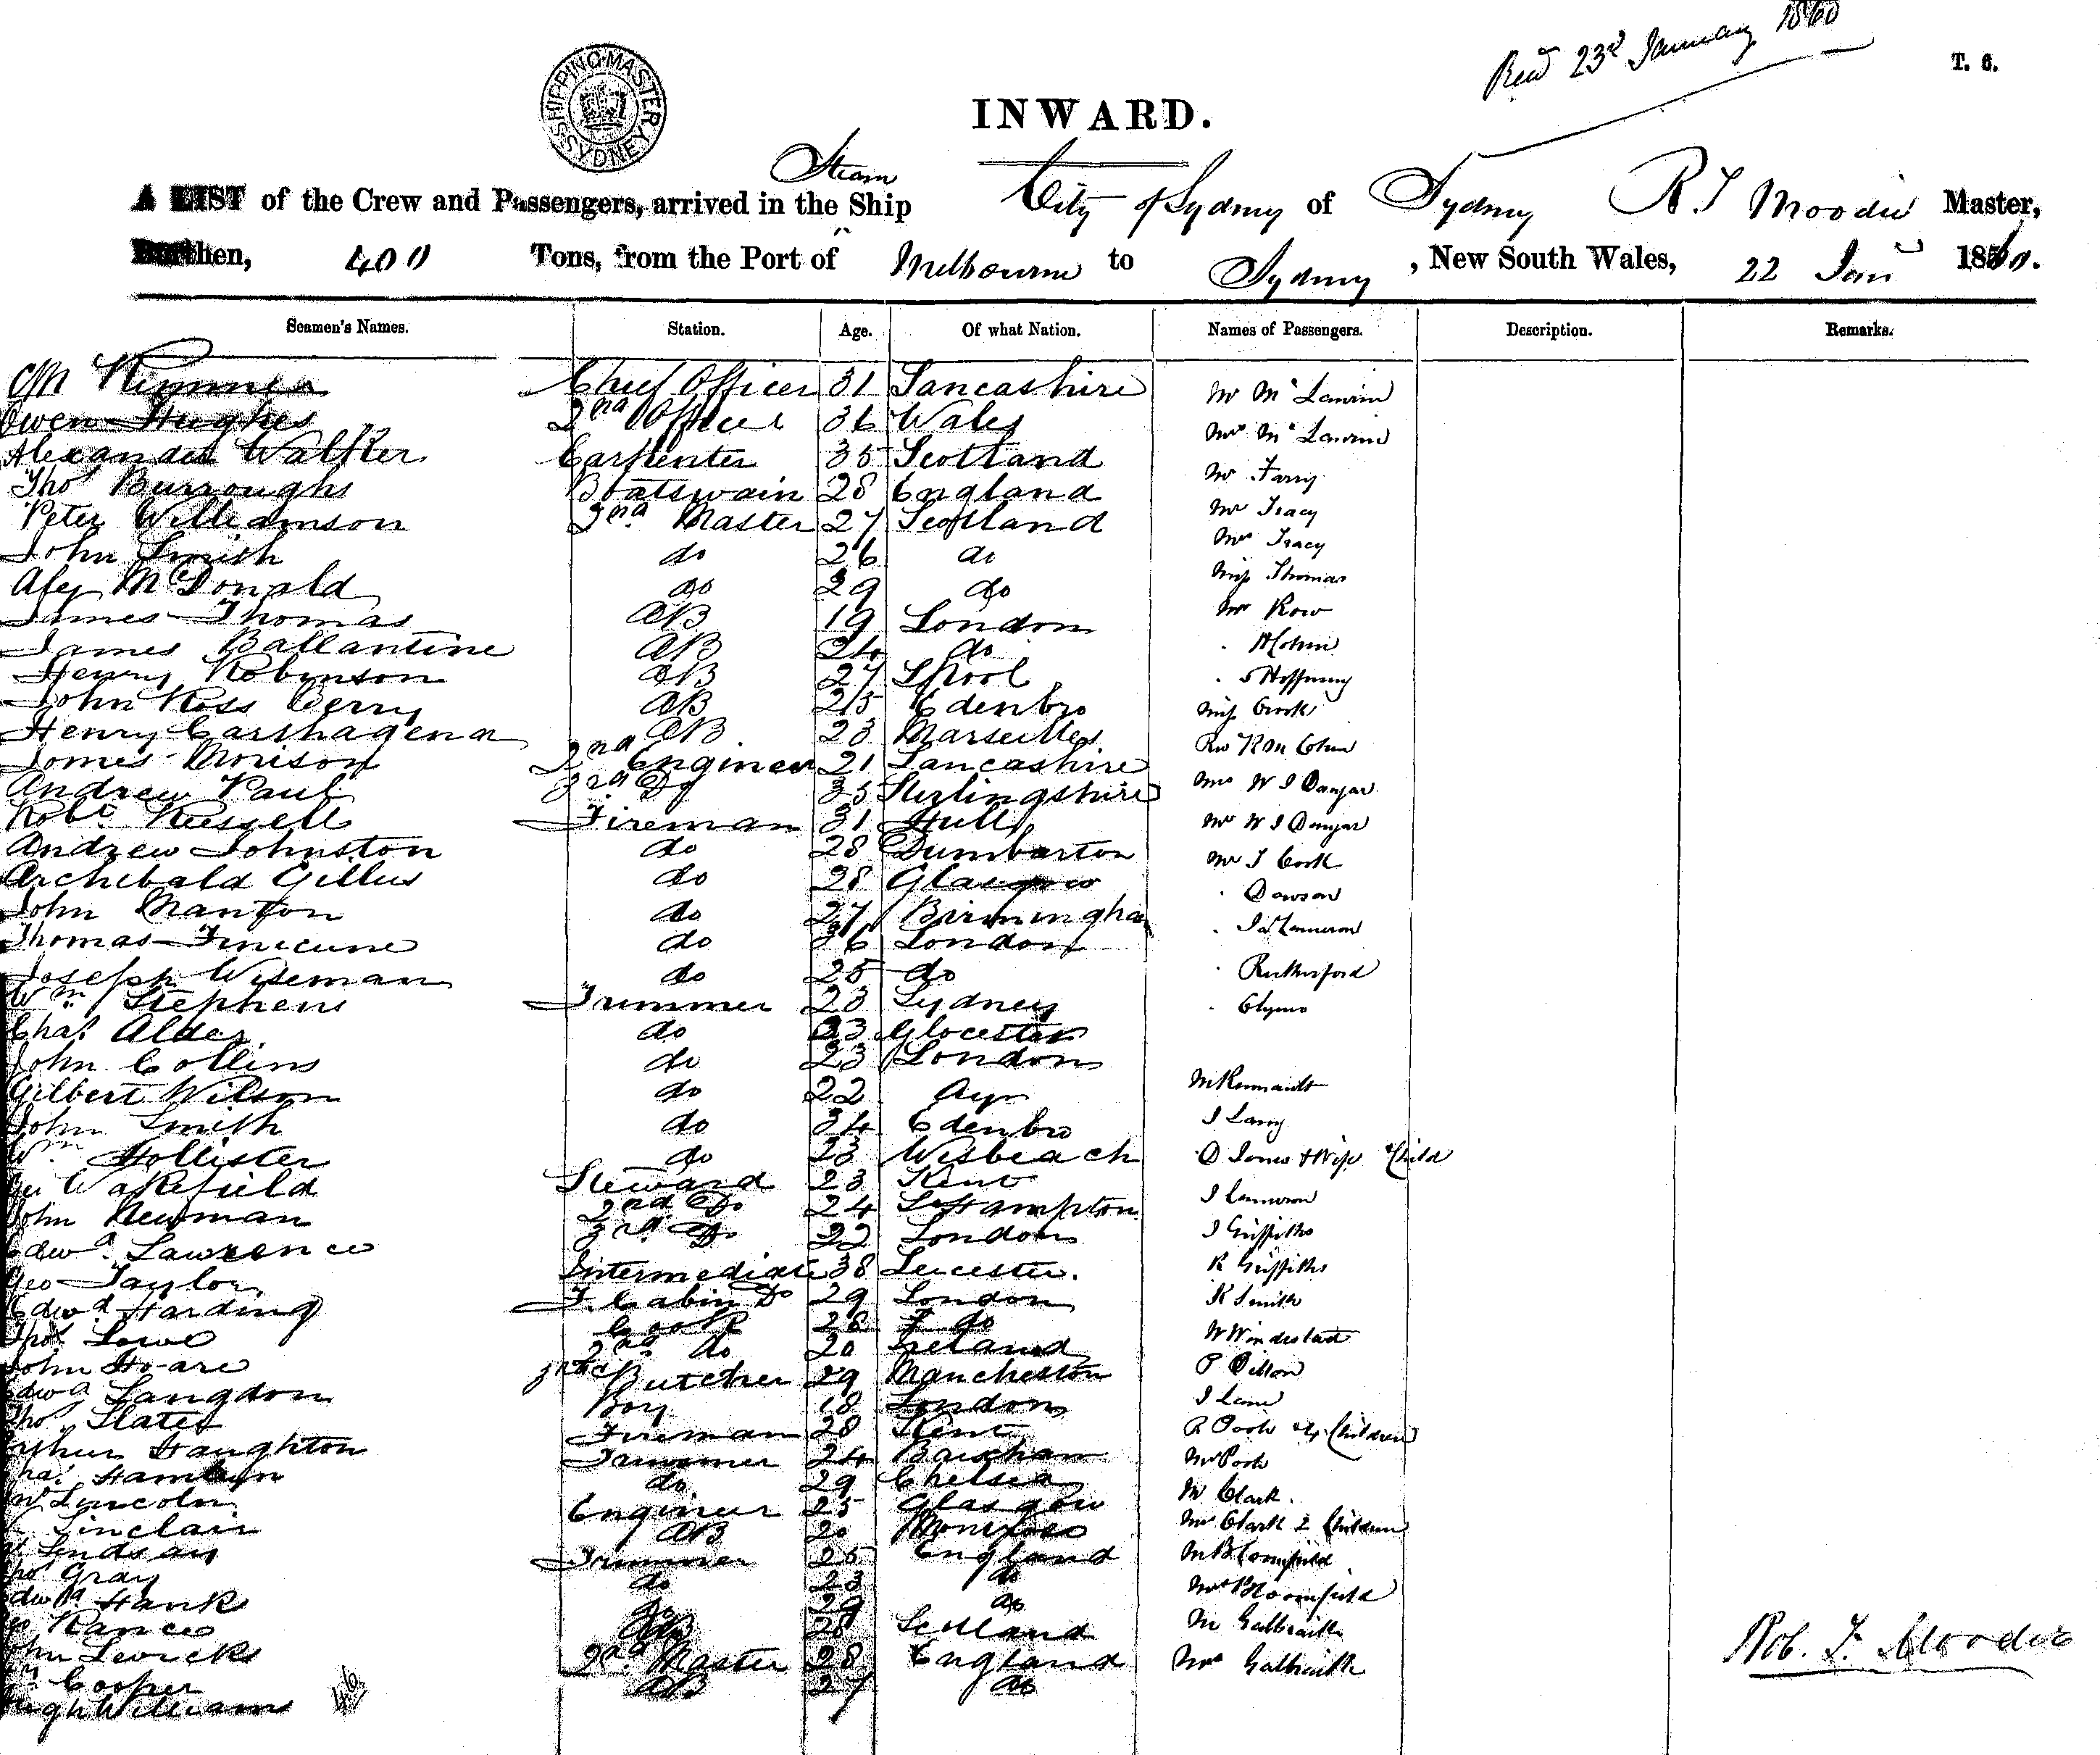 Recd 23rd January 1860
T. 6.
SHIPPING MASTER SYDNEY
INWARD.
A LIST of the Crew and Passengers, arrived in the Steam Ship City of Sydney of Sydney R T Moodie Master,
Burthen, 400 Tons, from the Port of Melbourne to Sydney, New South Wales, 22 Jany 1860.
Seamen's Names. Station. Age. Of what Nation. Names of Passengers. Description. Remarks.
Chief Officer 31 Lancashire Mr McLaurin
Owen Hughes 2nd Officer 36 Wales Mrs McLaurin
Alexander Walker Carpenter 35 Scotland Mr Farry
Thos Burroughs Boatswain 28 England Mr Tracy
Peter Williamson 2nd Master 27 Scotland Mrs Tracy
John Smith do 26 do Miss Thomas
Alex McDonald do 29 do Mr Row
James Thomas AB 19 London
James Ballantine AB 24 do
Henry Robinson AB 27 Lpool
John Ross Berry AB 25 Edenbro
Henry Carthagena AB 23 Marseilles
James Morison 2nd Engineer 21 Lancashire Mrs W J Dangar
Andrew Paul 3rd Do 35 Sterlingshire Mr W J Dangar
Robt Russell Fireman 31 Hull Mr J Cook
Andrew Johnston do 28 Dumbarton Dawson
Archibald Gillies do 28 Glasgow
John Manton do 27 Birmingham
Thomas Finucune do 36 London Rutherford
Joseph Wiseman do 25 do
Wm Stephens Trimmer 23 Sydney
Chas Alder do 23 Glocester
John Collins do 23 London
Gilbert Wilson do 22 Ayr
John Smith do 34 Edenbro J Lang
Wm Hollister do 23 Wisbeach D Jones & Wife & Child
Geo Wakefield Steward 23 Kent J Cameron
John Newman 2nd Do 24 SoHampton J Griffiths
Edwd Lawrence 3rd Do 22 London R Griffiths
Geo Taylor Intermediate 38 Leicester. R Smith
Edwd Harding F. Cabin Do 29 London
Thos Lowe Cook 28 do
John Hoare 2nd do 20 Ireland P Dillon
Edwd Langdon Butcher 29 Manchester
Thos Slater Boy 18 London
Arthur Haughton Fireman 28 Kent
Chas Hamblyn Trimmer 24
Wm Lincoln do 29 Chelsea Mr Clark.
Sinclair Engineer 25 Glasgow Mrs Clark 2 Children
Lindsay AB 20 Montrose Mr Bloomfield
Thos Gray Trimmer 25 England Mrs Bloomfield
Edwd Hank do 23 do
Rance do 29 do Mr Galbraith
John Levick AB 28 Scotland Mrs Galbraith
Wm Cooper 2nd Master 28 England
Hugh Williams AB 27 do
46
Rob. T. Moodie